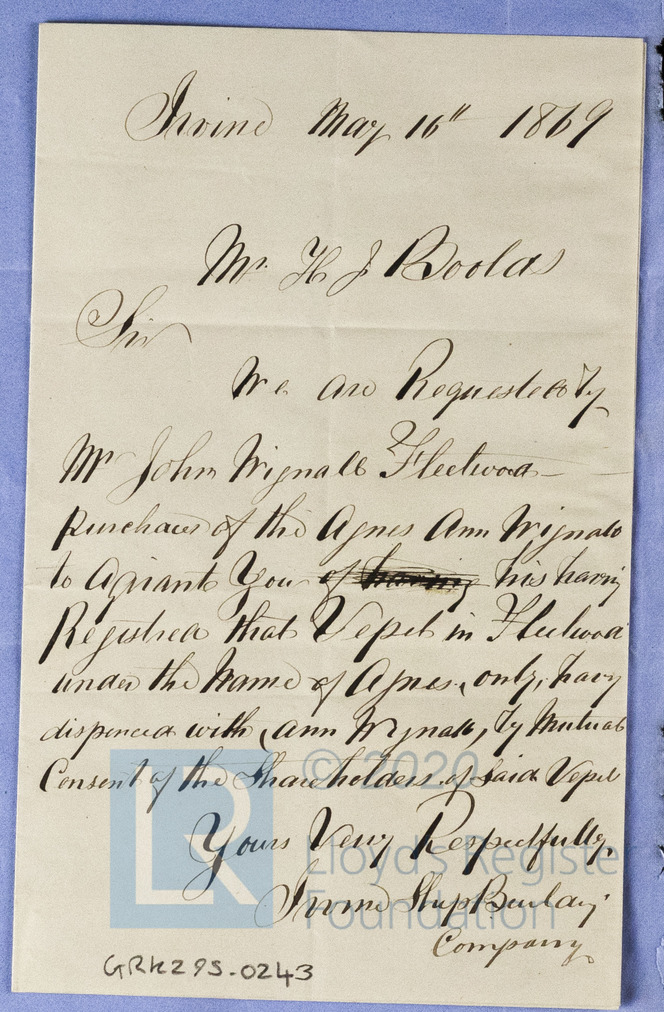 Irvine May 16th 1869
Mr. H J Boolds
Sir
We are Requested by
Mr John Wignall Fleetwood
purchaser of the Agnes Ann Wignall
to Aquant You of having his having
Registred that Vessel in Fleetwood
under the Name of Agnes, only, having
dispenced with (Ann Wignall, by Mutual
Consent of the Shareholders of said Vessel
Yours Very Respectfully,
Irvine Ship Building
Company
© 2020
LR
Lloyd's Register
Foundation
GRK295-0243